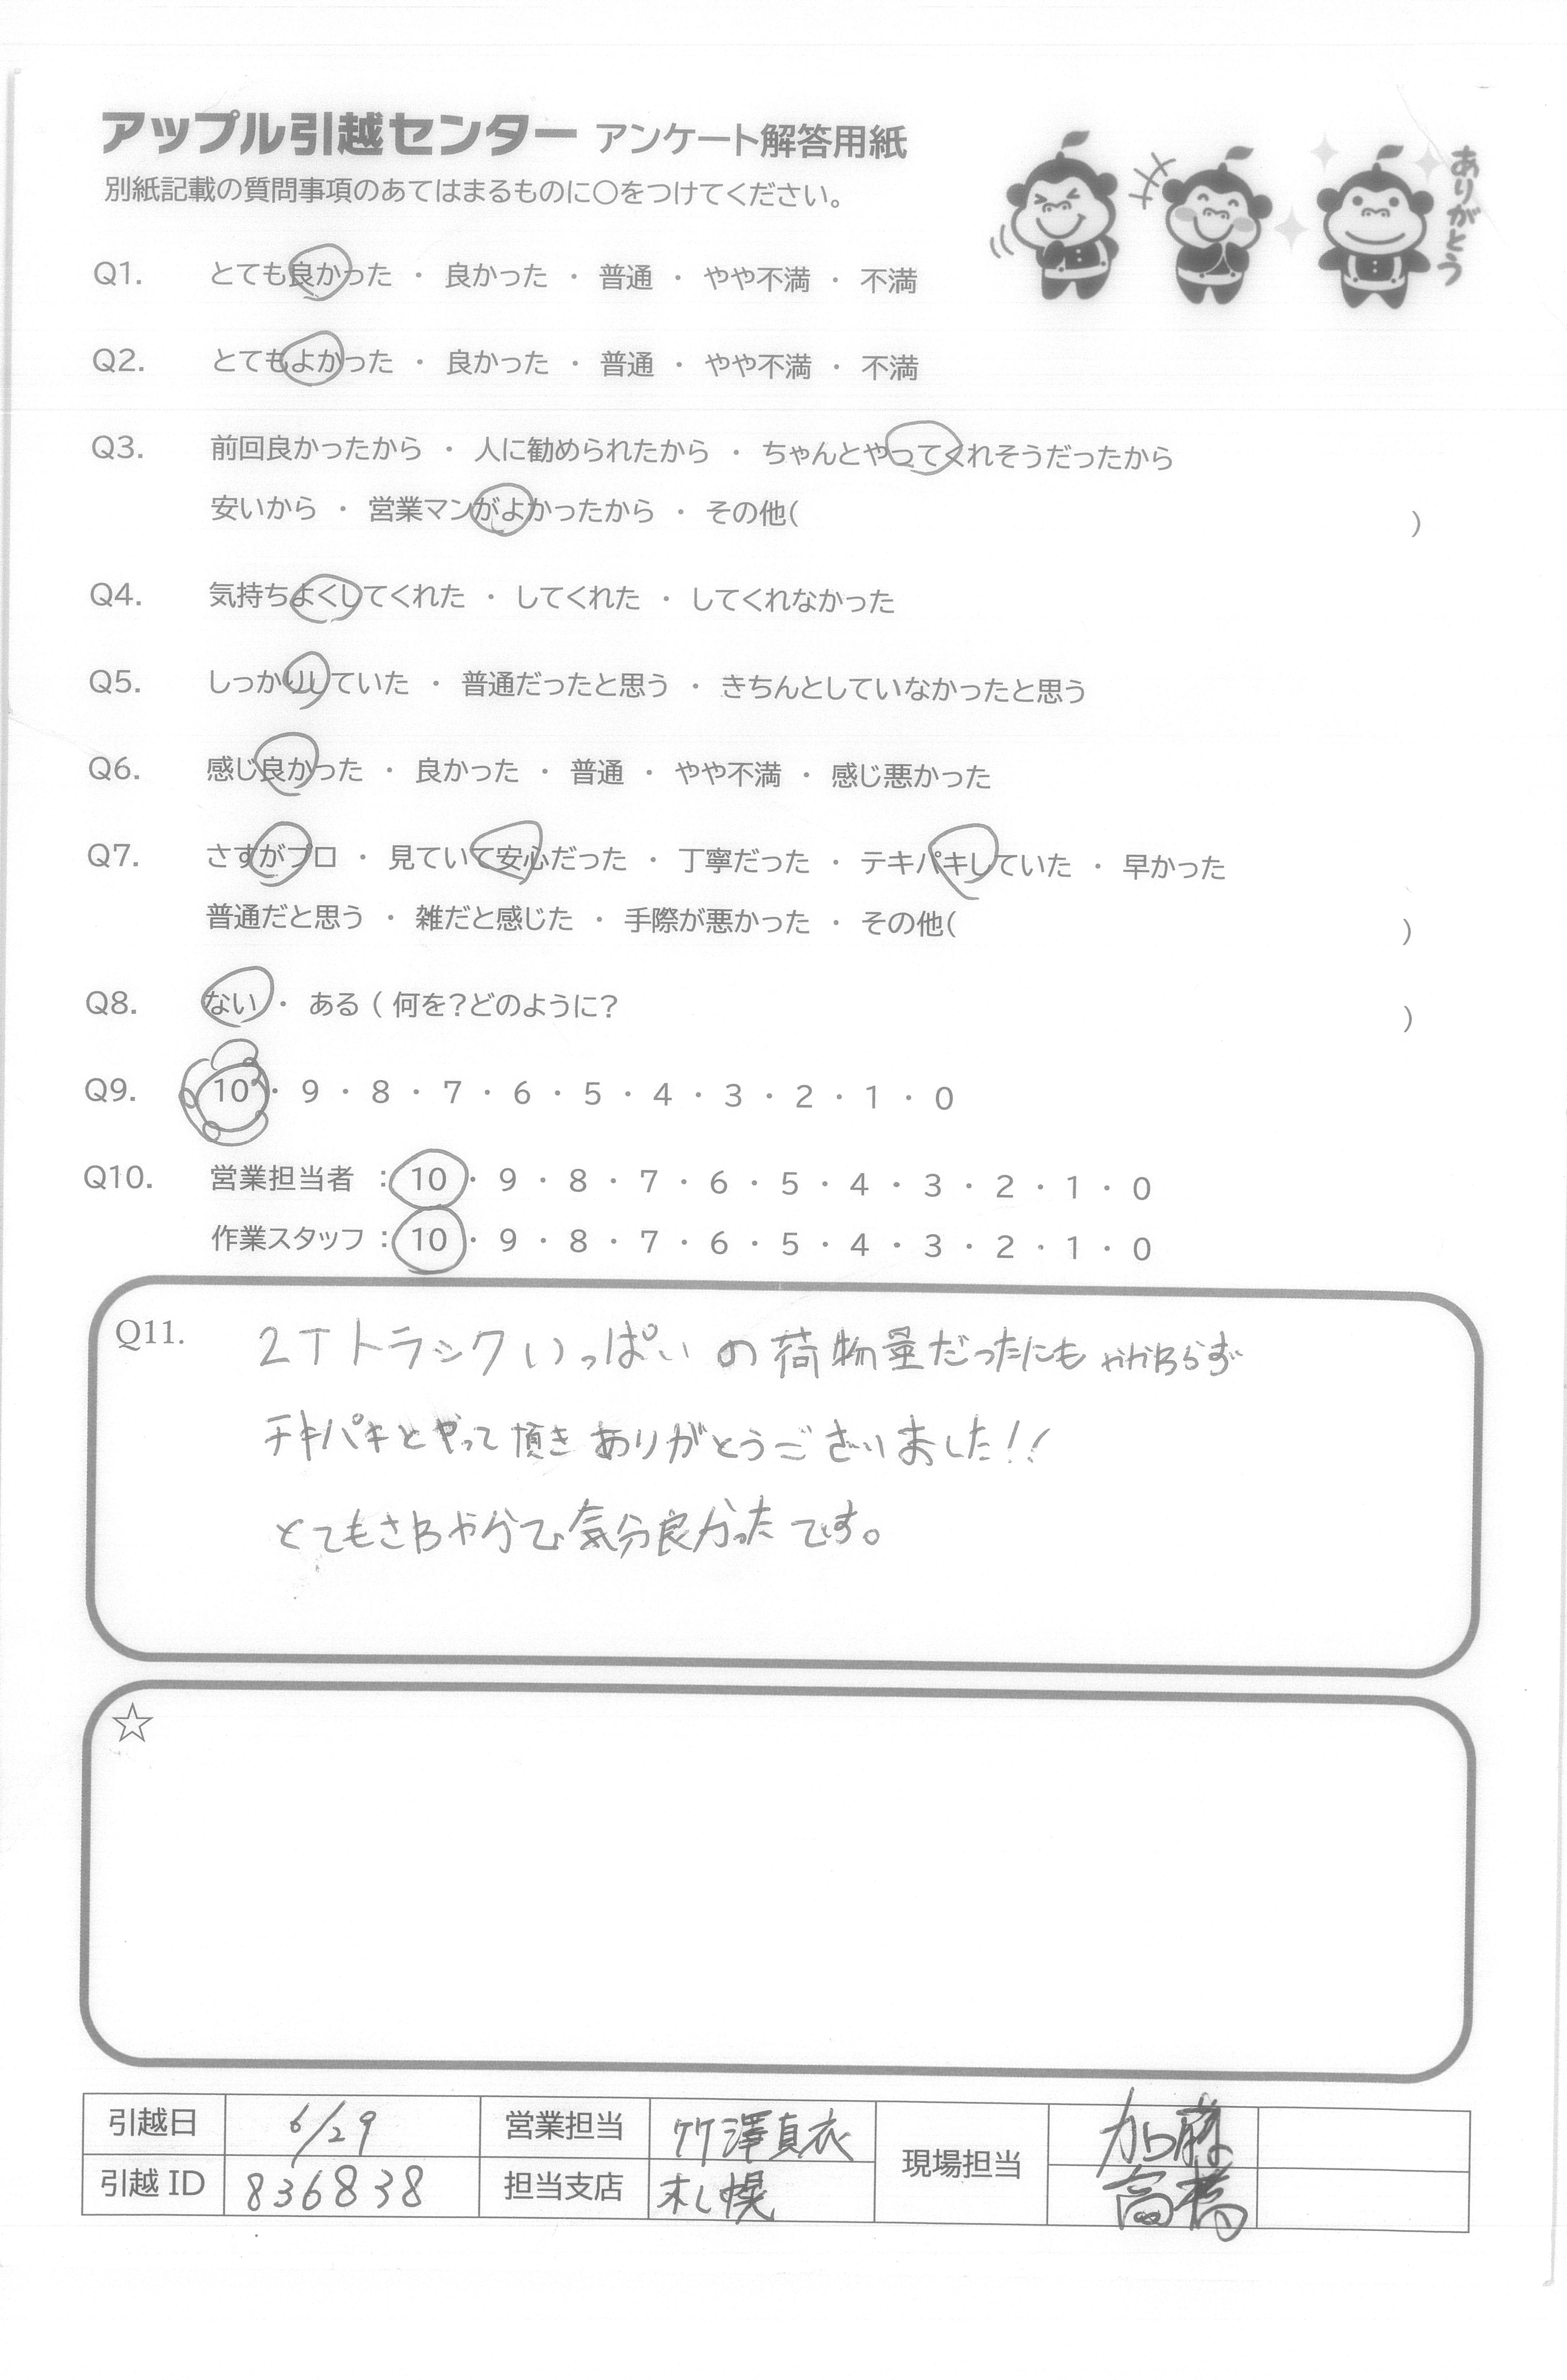 アップル引越センター アンケート解答用紙
ありがとう
別紙記載の質問事項のあてはまるものに〇をつけてください。
Q1. とても良かった ・ 良かった ・ 普通 ・ やや不満 ・ 不満
Q2. とてもよかった ・ 良かった ・ 普通 ・ やや不満 ・ 不満
Q3. 前回良かったから ・ 人に勧められたから ・ ちゃんとやってくれそうだったから
安いから ・ 営業マンがよかったから ・ その他( )
Q4. 気持ちよくしてくれた ・ してくれた ・ してくれなかった
Q5. しっかりしていた ・ 普通だったと思う ・ きちんとしていなかったと思う
Q6. 感じ良かった ・ 良かった ・ 普通 ・ やや不満 ・ 感じ悪かった
Q7. さすがプロ ・ 見ていて安心だった ・ 丁寧だった ・ テキパキしていた ・ 早かった
普通だと思う ・ 雑だと感じた ・ 手際が悪かった ・ その他( )
Q8. ない ・ ある ( 何を?どのように? )
Q9. 10 ・ 9 ・ 8 ・ 7 ・ 6 ・ 5 ・ 4 ・ 3 ・ 2 ・ 1 ・ 0
Q10. 営業担当者 : 10 ・ 9 ・ 8 ・ 7 ・ 6 ・ 5 ・ 4 ・ 3 ・ 2 ・ 1 ・ 0
作業スタッフ : 10 ・ 9 ・ 8 ・ 7 ・ 6 ・ 5 ・ 4 ・ 3 ・ 2 ・ 1 ・ 0
Q11. 2Tトラックいっぱいの荷物量だったにもかかわらず
テキパキとやって頂きありがとうございました!!
とてもさわやかで気分良かったです。
☆
引越日 6/29 営業担当 竹澤真衣 現場担当 加藤
引越 ID 836838 担当支店 札幌 高橋